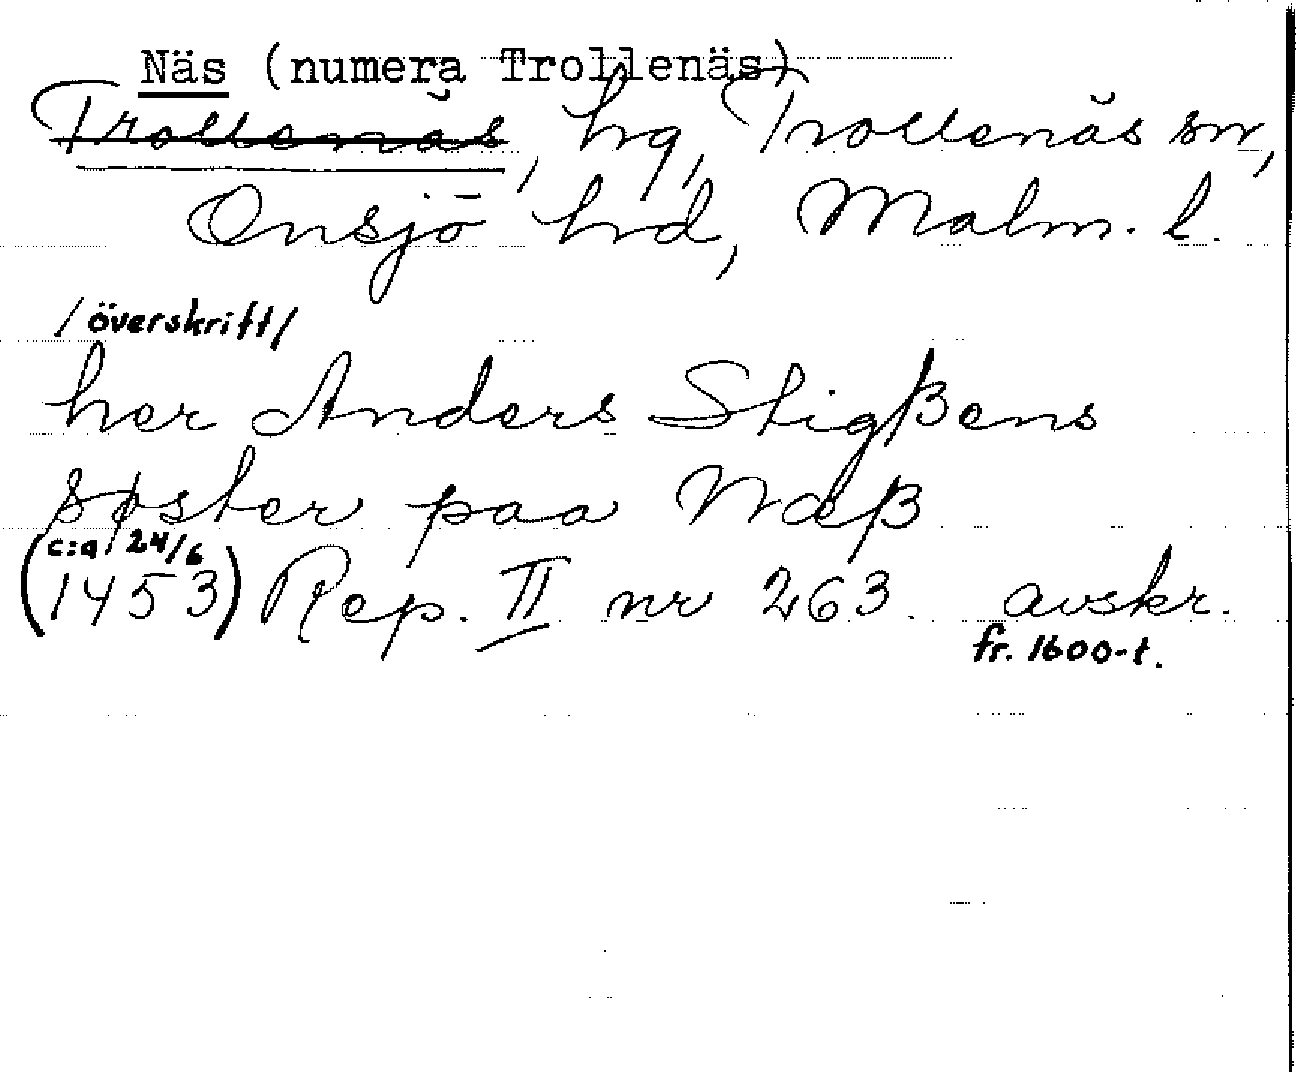 Näs (numera Trollenäs)
Trollenäs, hg, Trollenäs sn,
Onsjö hd, Malm. l.
/överskrift/
her Anders Stigßens
søster paa Næß
(c:a 24/6
1453) Rep. II nr 263. avskr.
fr. 1600-t.